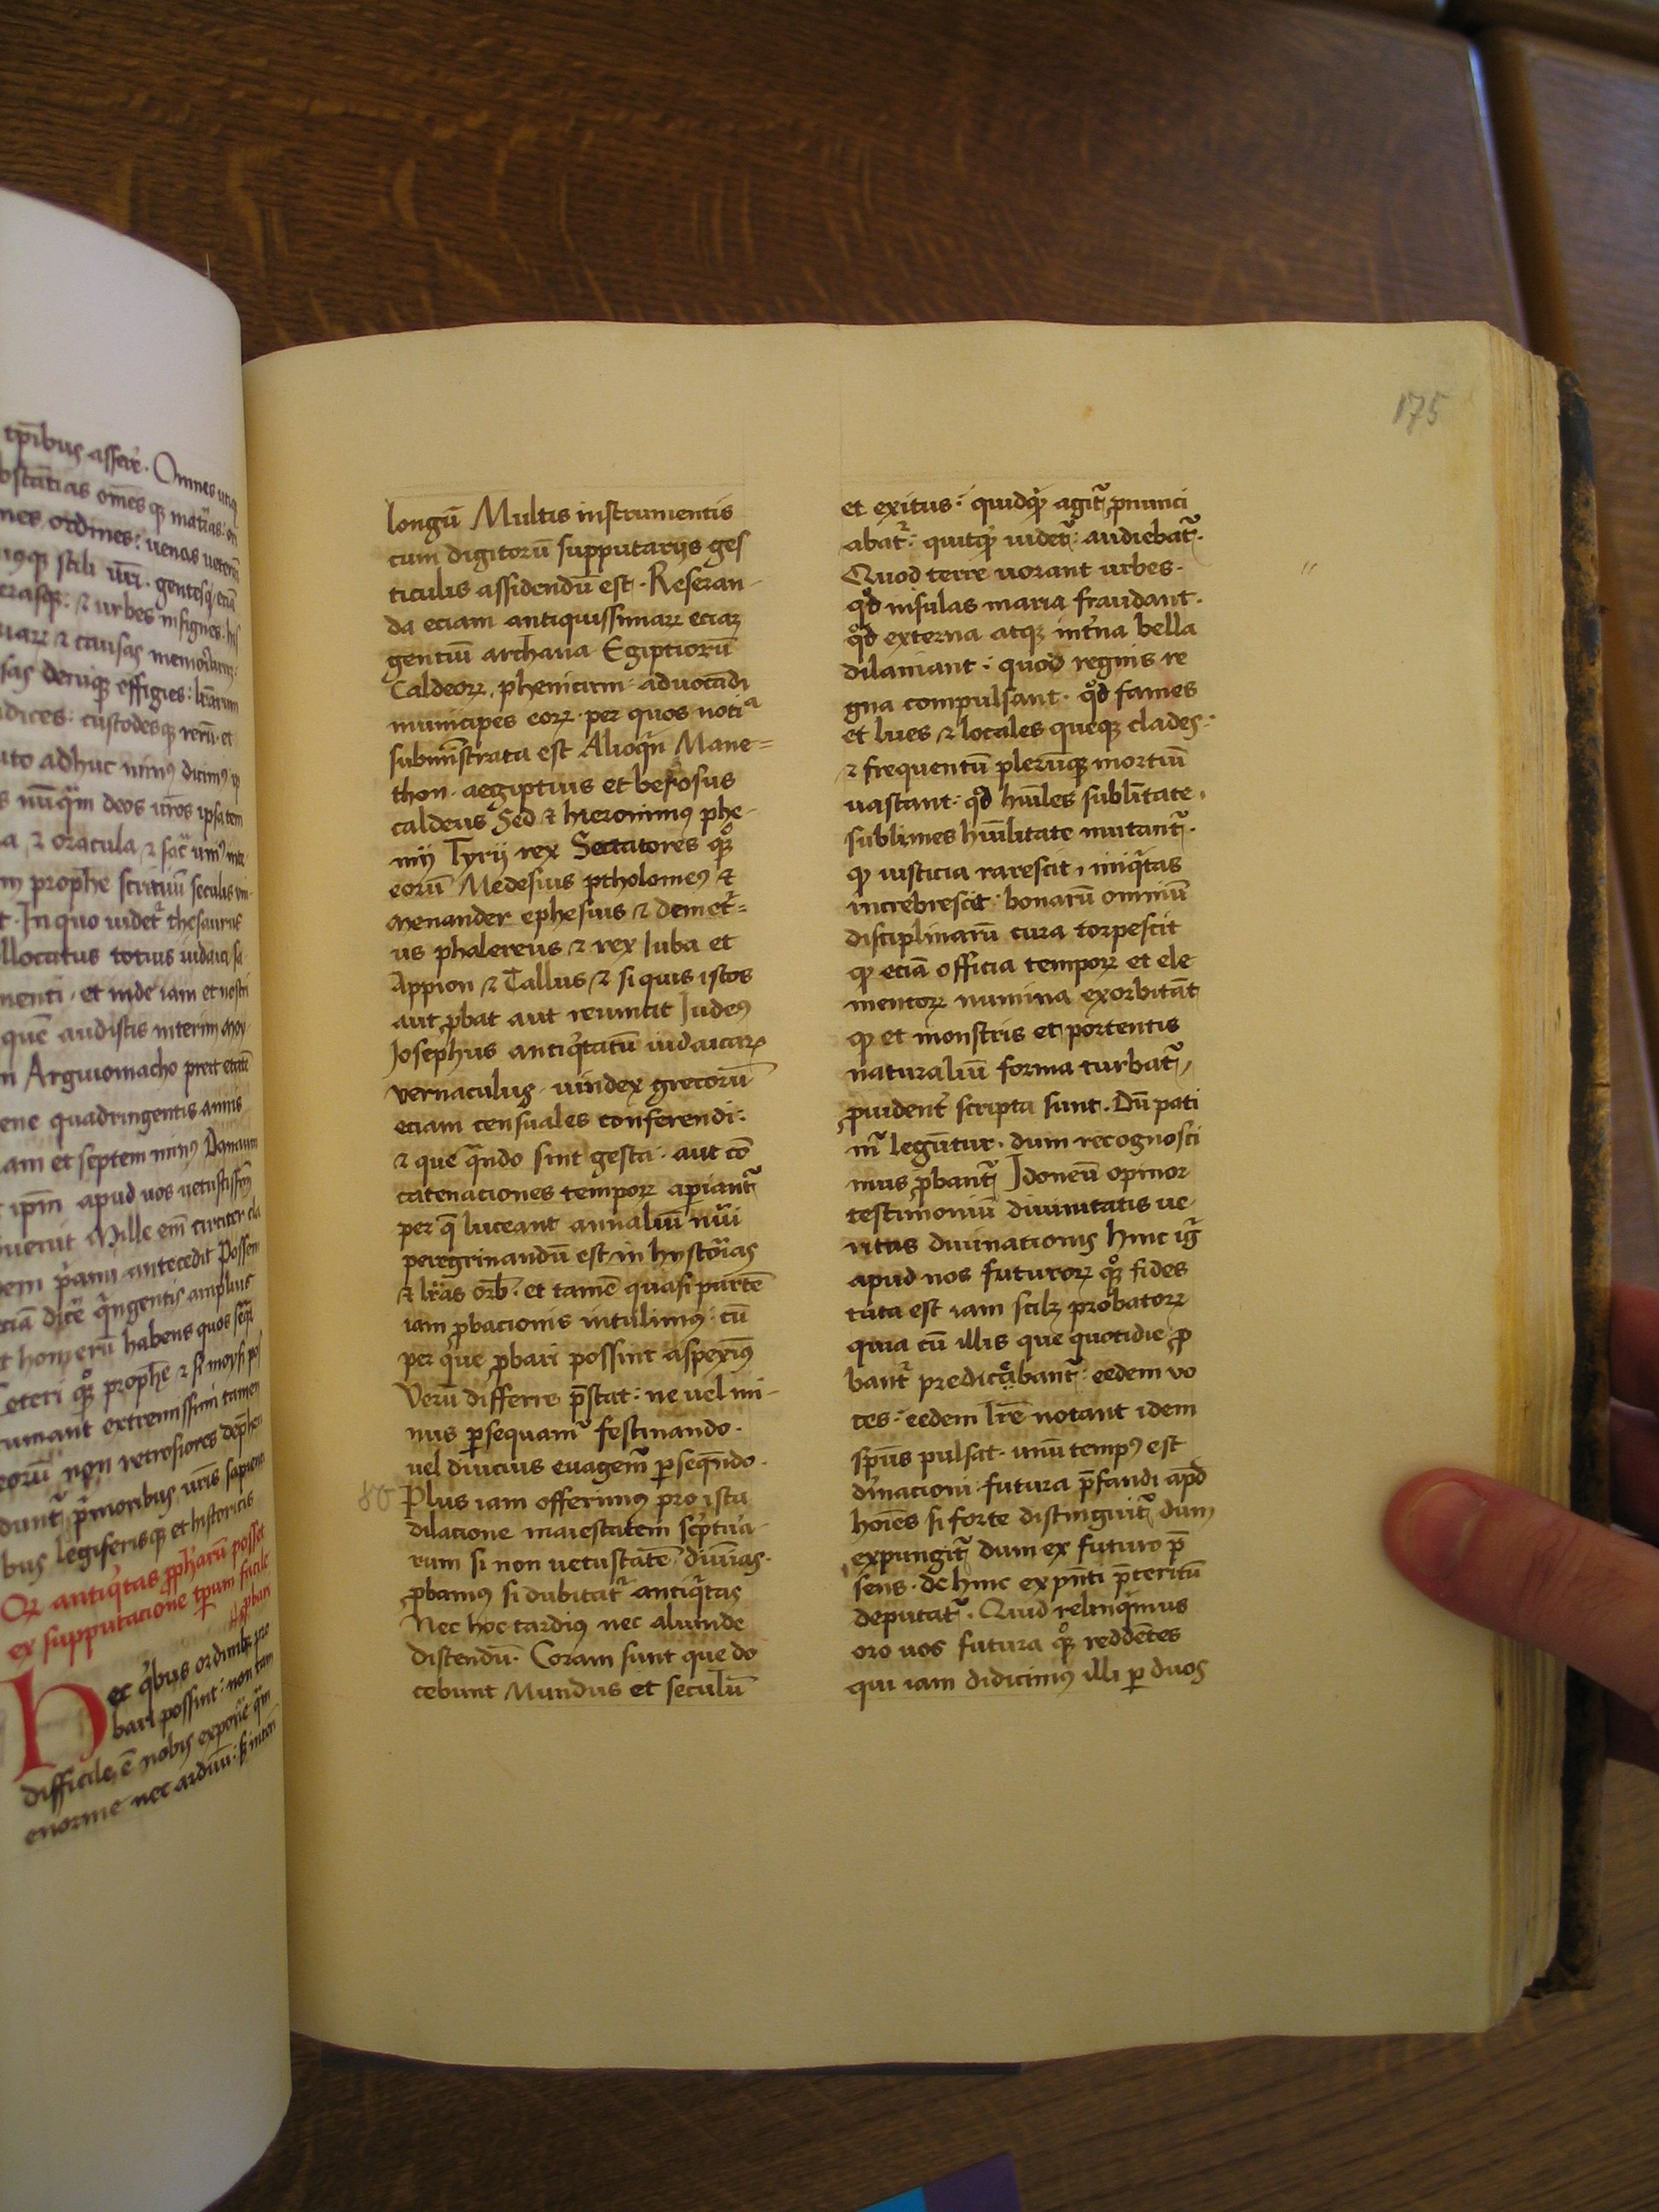 tp̄ibus asserē. Omnes
bstātias om̄es qꝫ mat̄ias:
nes ordines: uenas
stili ur̄i. gentesqꝫ
et urbes insignes.
causas memoriaꝝ:
sas deniqꝫ effigies: lr̄arum
dices: custodesqꝫ rerū. et
uto adhuc minꝰ dicimꝰ
nūq̄m deos ur̄os ipsa tem
a, et oracula, et
proph̄e scriniū seculis
t. In quo videt᷑ thesaurus
llocatus totius iudaici sa
menti, et inde iam et nostri
quē audistis interim moy
Arguiomacho preit etatē
ene quadringentis annis
am et septem minꝰ Danaum
ip̄m apud uos uetustissīm
uenit Mille em̄ circiter
dem p̄ami antecedit Possem
eciā dicē q̄ngentis amplius
t homerū habens quos
Ceteri qꝫ proph̄e et si moysi
umant extremissimi tamen
eorū non retrosiores
dunt᷑ p̄moribus uir̄is
bus legiferisqꝫ et historicis
Qꝫ antiq̄tas ꝓph̄arū posset
ex supputacione tp̄um facile
ꝓbari
Hec q̄bus ordinibꝫ pro
bari possint: non tam
difficile ē nobis exponē q̄m
enorme nec arduū:
175
longū Multis instrumentis
cum digitorū supputarijs ges
ticulis assidendū est. Reseran-
da eciam antiquissimaꝝ eciaꝫ
gentiū archana Egiptiorū
Caldeoꝝ, phenicum: aduocādi
municipes eoꝝ. per quos notiᵃ
submīstrata est Alioqn̄ Mane=
thon. aegiptius et berosus
caldeus Sed et hieronimꝰ phe-
nij Tyrij rex Sectatores qꝫ
eorū Medesius ptholomeꝰ et
Menander ephesius et demet̄=
us phalereus et rex Iuba et
Appion et Tallus et si quis istos
aut ꝓbat aut reuincit Iudeꝰ
Josephus antiq̄tatū iudaicaꝝ
vernaculus. uindex grecorū
eciam censuales conferendi:
et que q̄ndo sint gesta. aut cō
catenaciones tempoꝝ aꝑiant᷑
per q̄ luceant annaliū nūi
peregrinandū est in hystor̄ias
et lr̄as orb̄. et tamē quasi partē
iam ꝓbacionis intulimꝰ: cū
per que ꝓbari possint asperimꝰ
Verū differre p̄stat: ne uel mi-
nus ꝑsequamᷣ festinando.
uel diucius euagem᷑ ꝑseq̄ndo.
Plus iam offerimꝰ pro ista
dilacione maiestatem sc̄ptura-
rum si non uetustatē diuīas.
ꝓbamꝰ si dubitat᷑ antiq̄tas
Nec hoc tardiꝰ nec aliunde
discendū. Coram sunt que do
cebunt Mundus et seculū
et exitus: quidqꝫ agit᷑ ꝓnunci
abat᷑: quitqꝫ uidet᷑: audiebat᷑.
Quod terre uorant urbes.
qd̄ insulas maria fraudant.
qd̄ externa atqꝫ int̄na bella
dilaniant: quod regnis re
gna compulsant. qd̄ fames
et lues et locales queqꝫ clades.
et frequentū plerūqꝫ mortiū
uastant: qd̄ hūiles sublītate,
sublimes hūilitate mutant᷑.
qꝫ iusticia rarescit, iniq̄tas
increbrescit: bonarū omniū
disciplinarū cura torpescit
qꝫ eciā officia tempoꝝ et ele
mentoꝝ numina exorbitāt
qꝫ et monstris et portentis
naturaliū forma turbat᷑,
ꝓuident̄ scripta sunt. Dū pati
mᷣ leguntur. dum recognosci
mus ꝓbant᷑ Idoneū opinor
testimoniū diuinitatis ue
ritas diuinationis hinc iḡ
apud nos futuroꝝ qꝫ fides
tuta est iam scilꝫ probatoꝝ
quia cū illis que quotidie ꝓ
bant᷑ predicabant᷑: eedem uo
ces: eedem lr̄e notant idem
sp̄us pulsat. unū tempꝰ est
diuīacioni: futura p̄fandi apd̄
hoīes si forte distinguit᷑ dum
expungit᷑ dum ex futuro p̄
sens. dehinc ex pn̄ti p̄teritū
deputat᷑. Quid relinqimus
oro uos futura qꝫ reddētes
qui iam didicimꝰ illi ꝑ duos